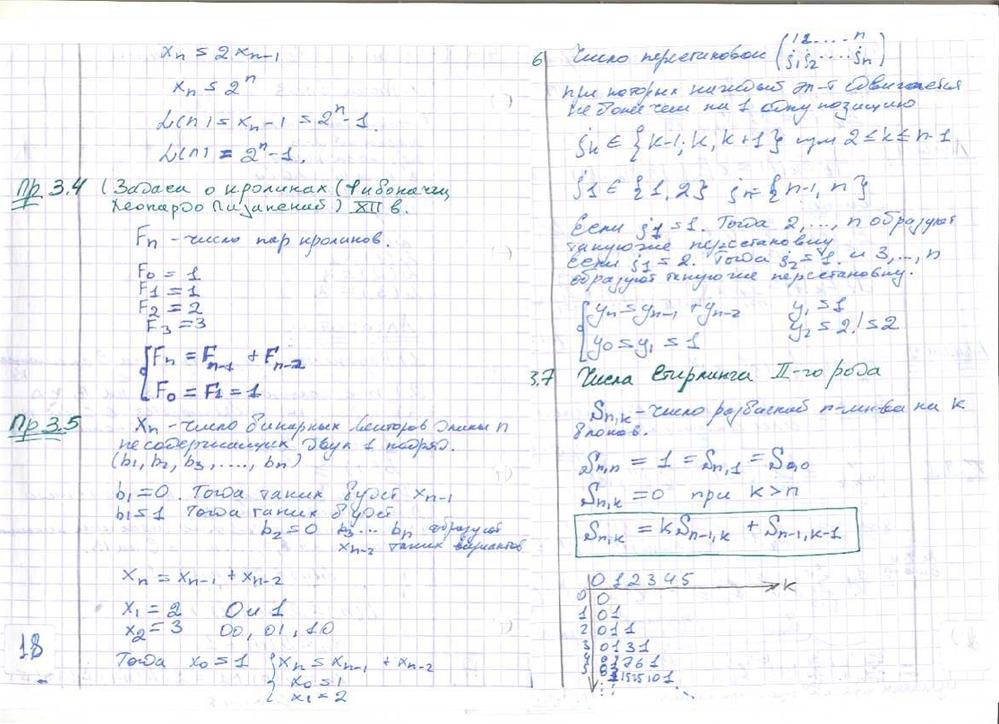 xₙ = 2xₙ₋₁
xₙ = 2ⁿ
L(n) = xₙ - 1 = 2ⁿ - 1.
L(n) = 2ⁿ - 1.
Пр 3.4 (Задача о кроликах (Фибоначчи,
Леонардо Пизанский) XII в.
Fₙ - число пар кроликов.
F₀ = 1
F₁ = 1
F₂ = 2
F₃ = 3
{ Fₙ = Fₙ₋₁ + Fₙ₋₂
F₀ = F₁ = 1
Пр 3.5 Xₙ - число бинарных векторов длины n
не содержащих двух 1 подряд.
(b₁, b₂, b₃, ...., bₙ)
b₁ = 0. Тогда таких будет xₙ₋₁
b₁ = 1 Тогда таких будет
b₂ = 0 b₃... bₙ образуют
xₙ₋₂ таких вариантов
xₙ = xₙ₋₁ + xₙ₋₂
x₁ = 2 0 и 1
x₂ = 3 00, 01, 10
Тогда x₀ = 1 { xₙ = xₙ₋₁ + xₙ₋₂
x₀ = 1
x₁ = 2
18
6 Число перестановок (12....n
j₁j₂....jₙ)
при которых каждый эл-т сдвигается
не более чем на 1 одну позицию
jₖ ∈ {k-1; k, k+1} при 2 ≤ k ≤ n-1
j₁ ∈ {1, 2} jₙ = {n-1, n}
Если j₁ = 1. Тогда 2, ..., n образуют
такую же перестановку
Если j₁ = 2. Тогда j₂ = 1 и 3, ..., n
образуют такую же перестановку.
{ yₙ = yₙ₋₁ + yₙ₋₂ y₁ = 1
y₀ = y₁ = 1 y₂ = 2! = 2
3.7 Числа Стирлинга II-го рода
Sₙ,ₖ - число разбиений n-мн-ва на k
блоков.
Sₙ,ₙ = 1 = Sₙ,₁ = S₀,₀
Sₙ,ₖ = 0 при k > n
Sₙ,ₖ = kSₙ₋₁,ₖ + Sₙ₋₁,ₖ₋₁
0 1 2 3 4 5 k
0 0
1 0 1
2 0 1 1
3 0 1 3 1
4 0 1 7 6 1
5 0 1 15 25 10 1